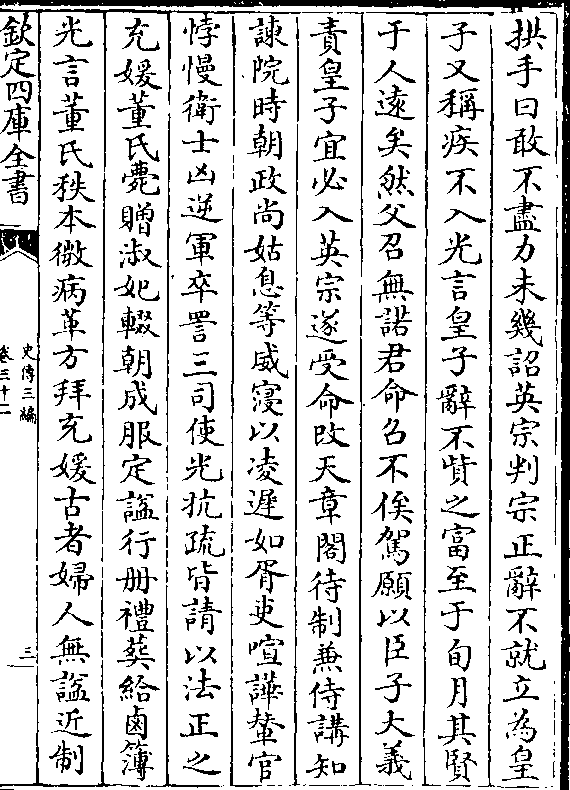 拱手曰敢不盡力未幾詔英宗判宗正辭不就立為皇
子又稱疾不入光言皇子辭不貲之富至于旬月其賢
于人逺矣然父召無諾君命召不俟駕願以臣子大義
責皇子宜必入英宗遂受命改天章閣待制兼侍講知
諫院時朝政尚姑息等威寖以凌遲如胥吏喧譁輦官
悖慢衛士凶逆軍卒詈三司使光抗疏皆請以法正之
充媛董氏薨贈淑妃輟朝成服定諡行册禮葬給鹵簿
光言董氏秩本微病革方拜充媛古者婦人無諡近制
欽定四庫全書
史傳三編
卷三十二
三